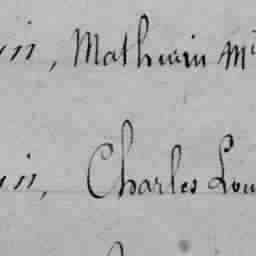 in, Mathurin M
in, Charles Lou